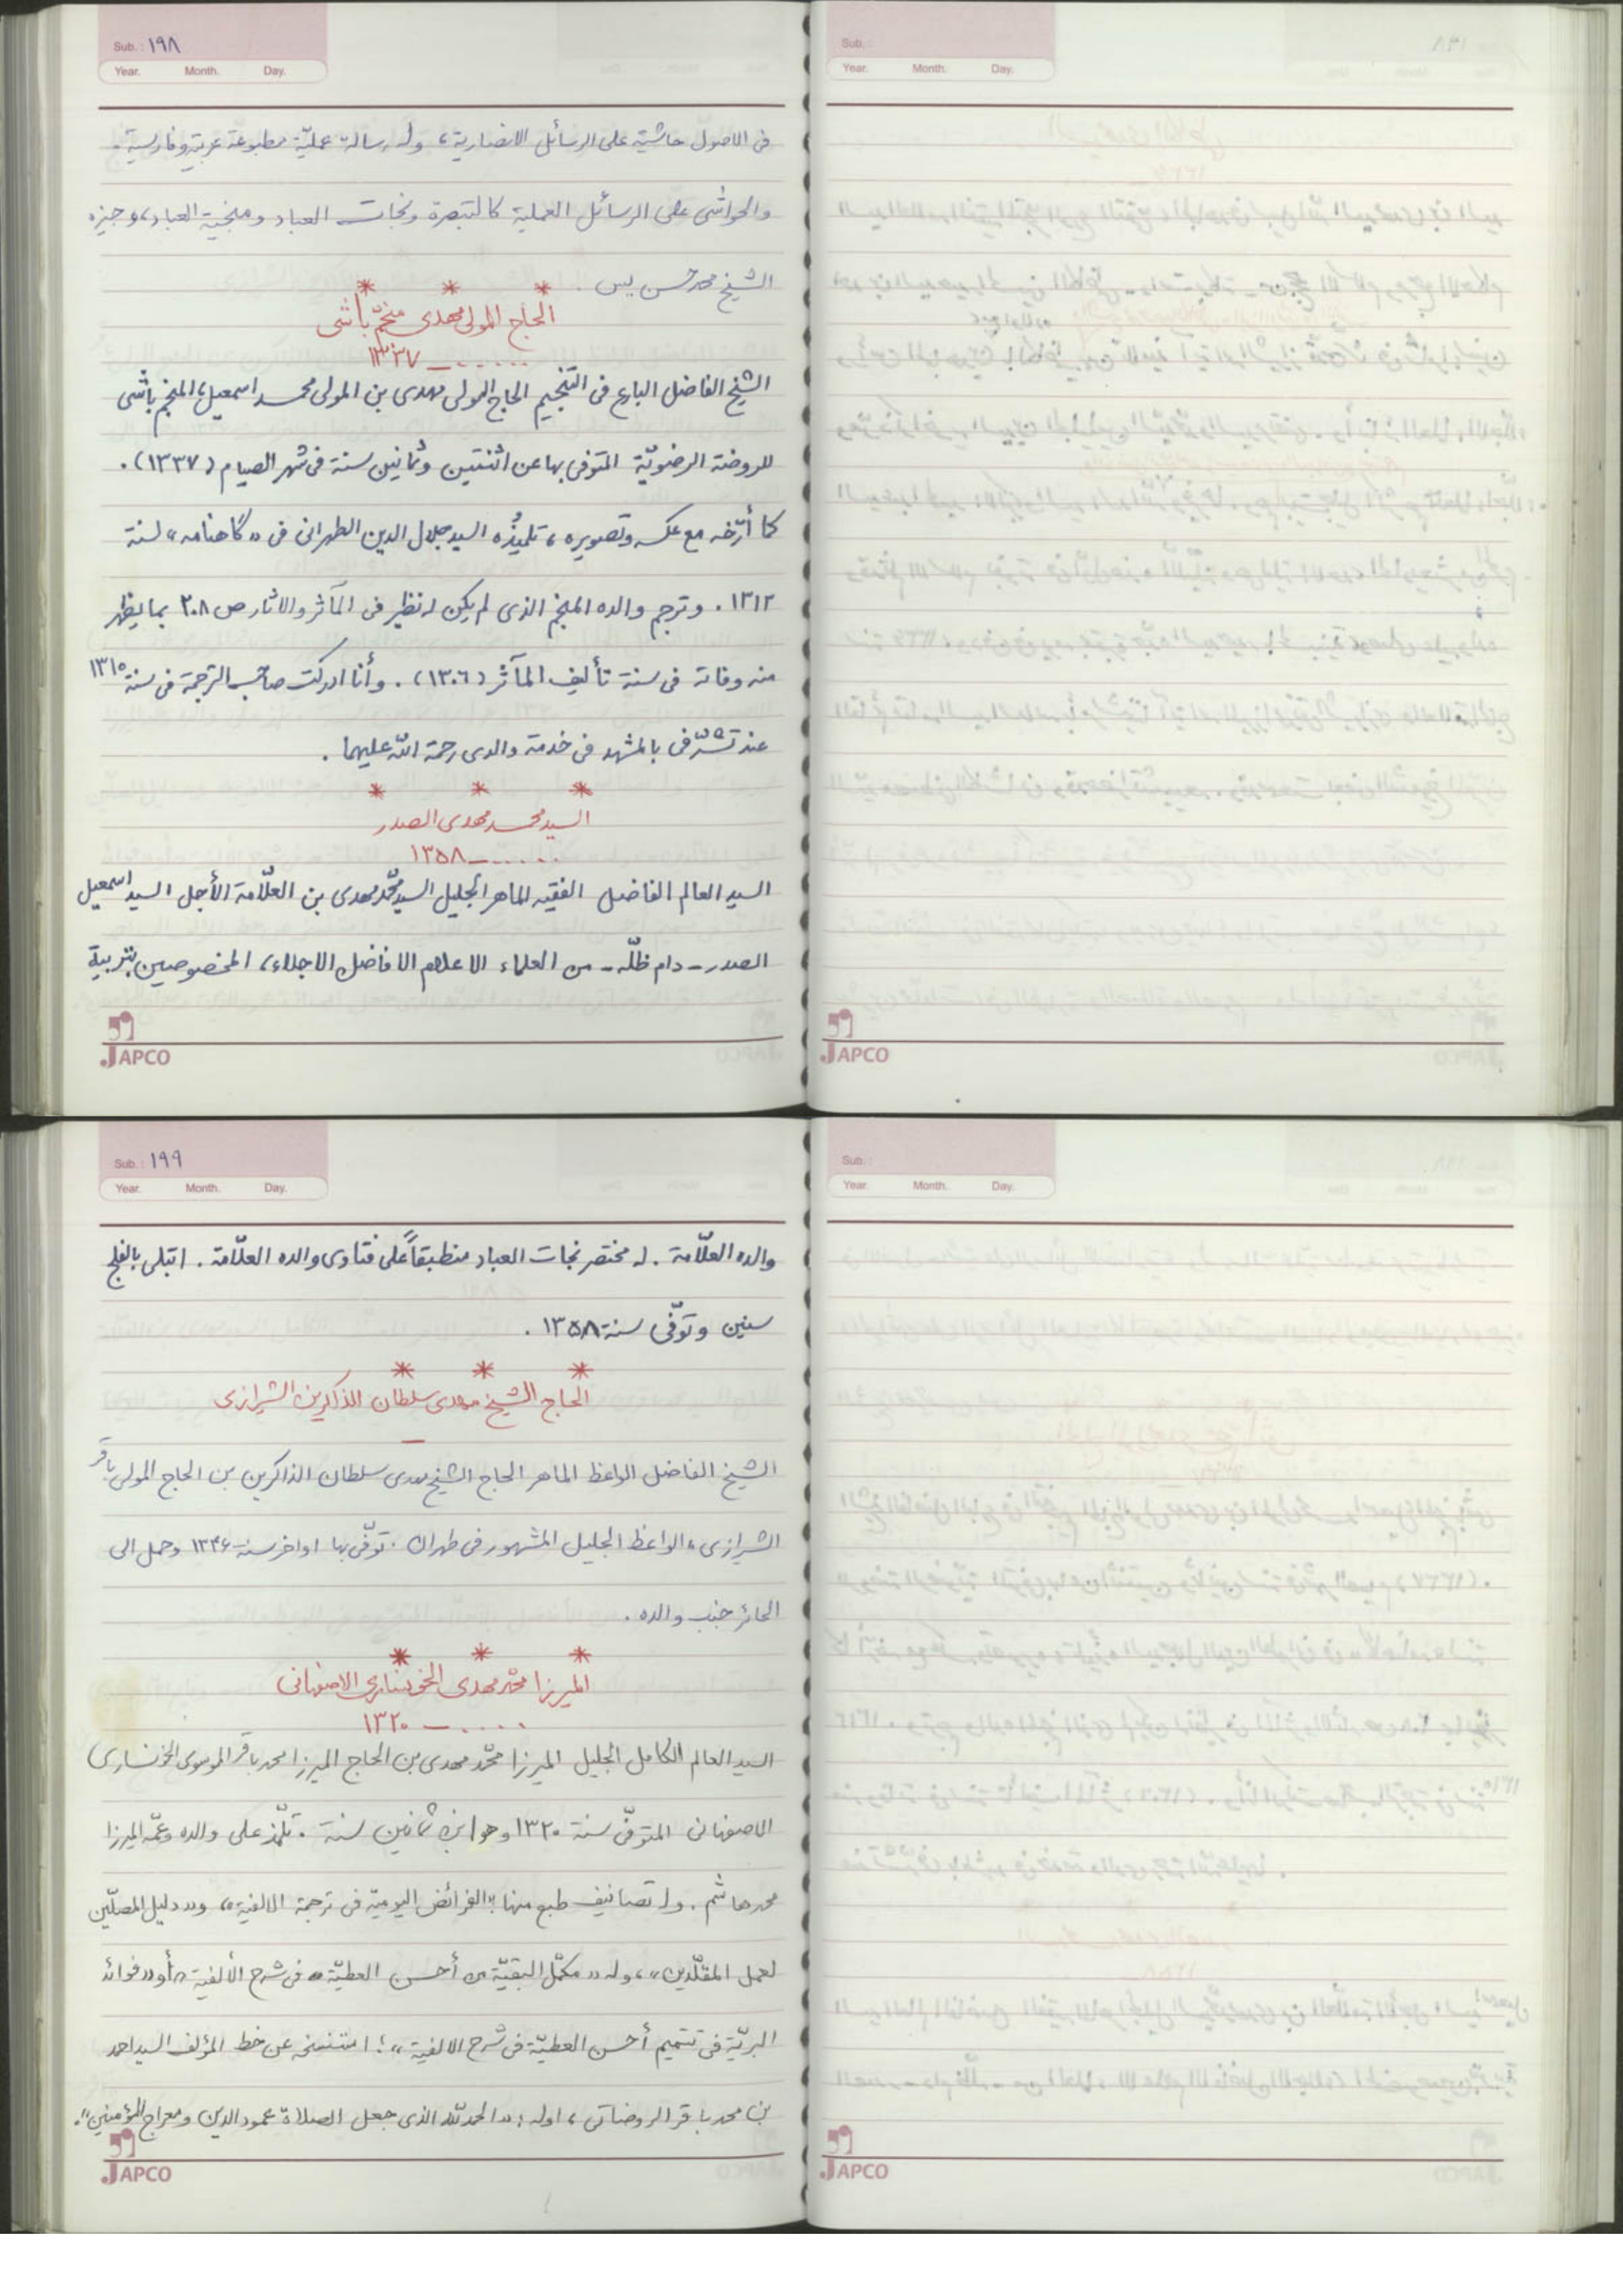 Sub.: ١٩٨
Year. Month. Day.
فى الاصول حاشية على الرسائل الانصارية، وله رسالة عمليّة مطبوعة عربية وفارسية.
والحواشى على الرسائل العملية كالتبصرة ونجات العباد ومنجية العباد، وجيزه
الشيخ محمد حسن يس.
* * *
الحاج المولى مهدى منجّم باشى
...... ـ ١٣٣٧
الشيخ الفاضل البارع فى التنجيم الحاج المولى مهدى بن المولى محمد اسمعيل، المنجم باشى
للروضة الرضويّة المتوفى بها عن اثنتين وثمانين سنة فى شهر الصيام (١٣٣٧).
كما أرّخه مع عكسه وتصويره، تلميذُه السيد جلال الدين الطهرانى فى «گاهنامه» لسنة
١٣١٢. وترجم والده المنجم الذى لم يكن له نظير فى المآثر والاثار ص ٢٠٨ بما يظهر
منه وفاته فى سنة تأليف المآثر (١٣٠٦). وأنا ادركت صاحب الترجمة فى سنة ١٣١٥
عند تشرّفى بالمشهد فى خدمة والدى رحمة اللّه عليهما.
* * *
السيد محمد مهدى الصدر
...... ـ ١٣٥٨
السيد العالم الفاضل الفقيه الماهر الجليل السيد محمّد مهدى بن العلّامة الأجل السيد اسمعيل
الصدر ـ دام ظلّه ـ من العلماء الاعلام الافاضل الاجلاء، المخصوصين بتربية
JAPCO
Sub.:
Year. Month. Day.
JAPCO
Sub.: ١٩٩
Year. Month. Day.
والده العلّامة. له مختصر نجات العباد منطبقاً على فتاوى والده العلّامة. ابتلى بالفلج
سنين وتوّفى سنة ١٣٥٨.
* * *
الحاج الشيخ مهدى سلطان الذاكرين الشيرازى
ـ
الشيخ الفاضل الواعظ الماهر الحاج الشيخ مهدى سلطان الذاكرين بن الحاج المولى باقر
الشيرازى، الواعظ الجليل المشهور فى طهران. توّفى بها اواخر سنة ١٣٤۶ وحمل الى
الحائر جنب والده.
* * *
الميرزا محمّد مهدى الخونسارى الاصفهانى
..... ـ ١٣٢٠
السيد العالم الكامل الجليل الميرزا محمّد مهدى بن الحاج الميرزا محمد باقر الموسوى الخونسارى
الاصفهانى المتوفّى سنة ١٣٢٠ وهو ابن ثمانين سنة. تلّمذ على والده وعمّه الميرزا
محمد هاشم. وله تصانيف طبع منها «الفرائض اليوميّة فى ترجمة الالفية»، و«دليل المصلّين
لعمل المقلّدين»، وله «مكمّل البقيّة من أحسن العطيّة فى شرح الألفية» أو «فوائد
البريّة فى تتميم أحسن العطيّة فى شرح الالفية»؛ استنسخه عن خط المؤلف السيد احمد
بن محمد باقر الروضاتى، اوله: «الحمد للّه الذى جعل الصلاة عمود الدين ومعراج المؤمنين».
JAPCO
Sub.:
Year. Month. Day.
JAPCO